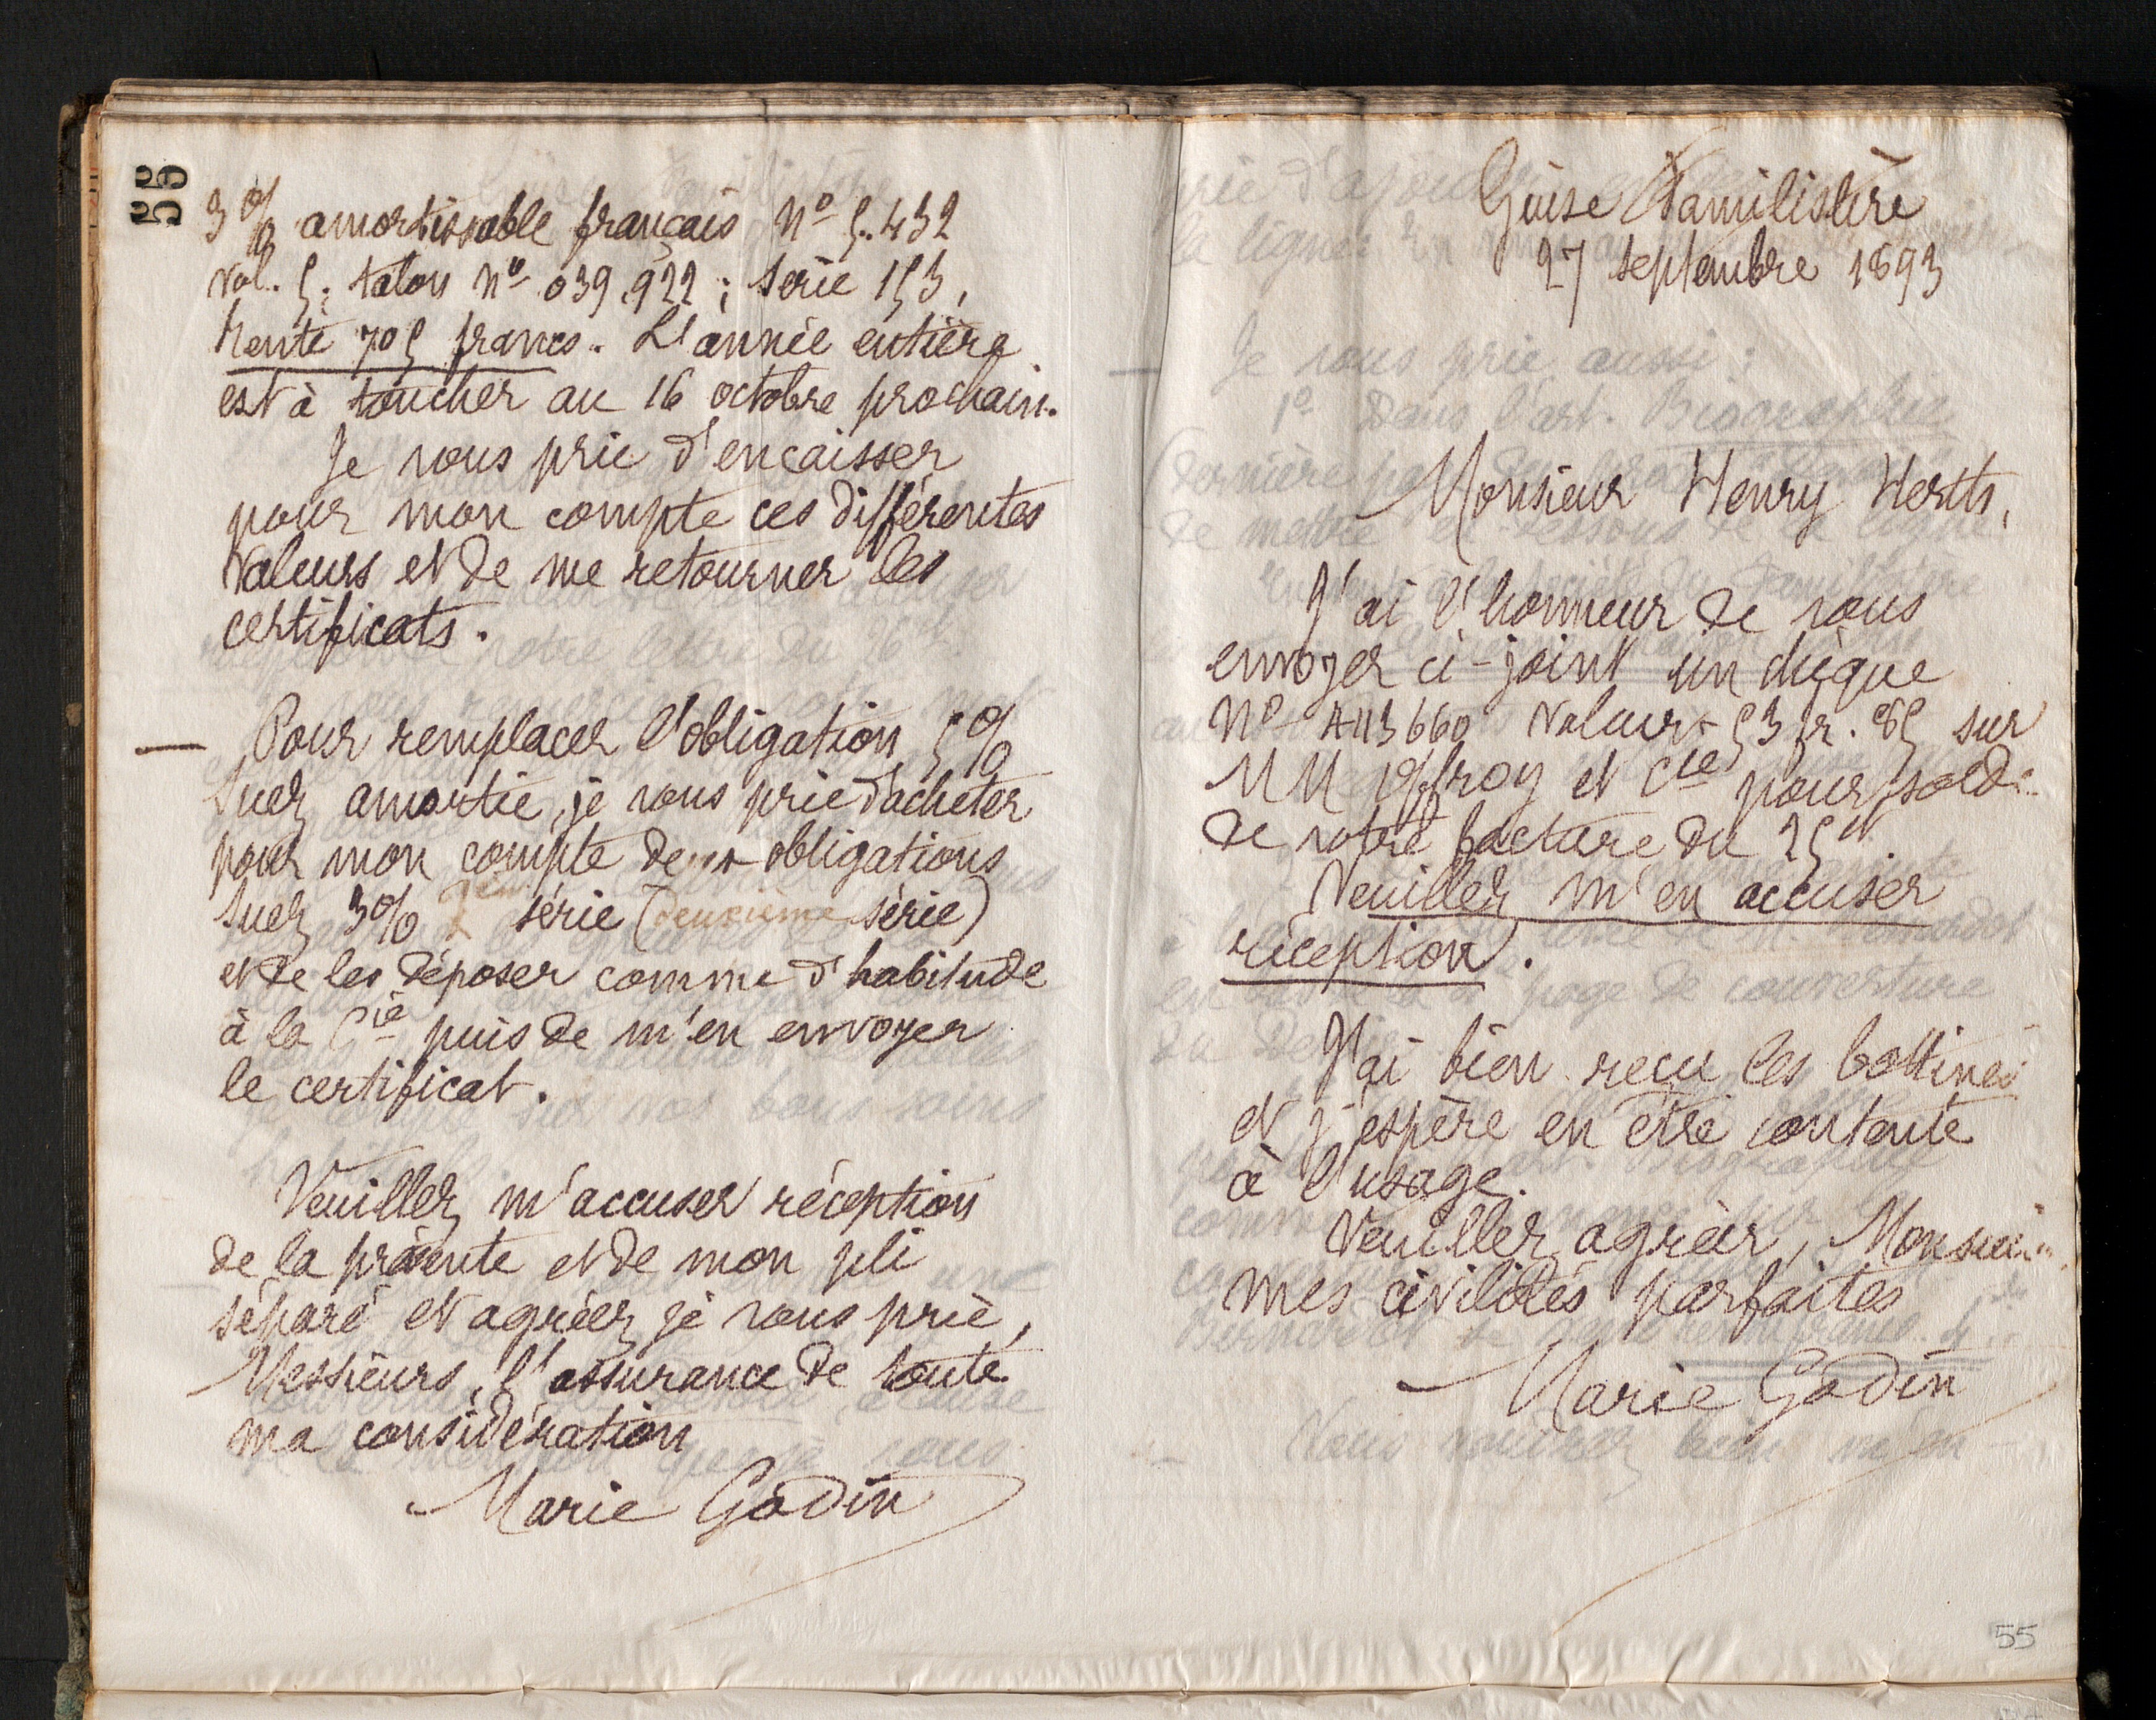 55
3% amortissable français N° 5.432
vol. 5; talon N° 039.922; série 153,
rente 705 francs. L'année entière
est à toucher au 16 octobre prochain.
Je vous prie d'encaisser
pour mon compte ces différentes
valeurs et de me retourner les
certificats.
— Pour remplacer l'obligation 5%
Suez amortie, je vous prie d'acheter
pour mon compte deux obligations
Suez 3% 2ème série (deuxième série)
et de les déposer comme d'habitude
à la Cie puis de m'en envoyer
le certificat.
Veuillez m'accuser réception
de la présente et de mon pli
séparé et agréez, je vous prie,
Messieurs, l'assurance de toute
ma considération
Marie Godin
Guise Familistère
27 septembre 1893
Monsieur Henry
J'ai l'honneur de vous
envoyer ci-joint un chèque
N° 443660 valeur 53 fr. 85 sur
MM Offroy et Cie pour solde
de votre facture du 25 ct
Veuillez m'en accuser
réception.
J'ai bien reçu les bottines
et j'espère en être contente
à l'usage.
Veuillez agréer, Monsieur,
mes civilités parfaites
Marie Godin
55